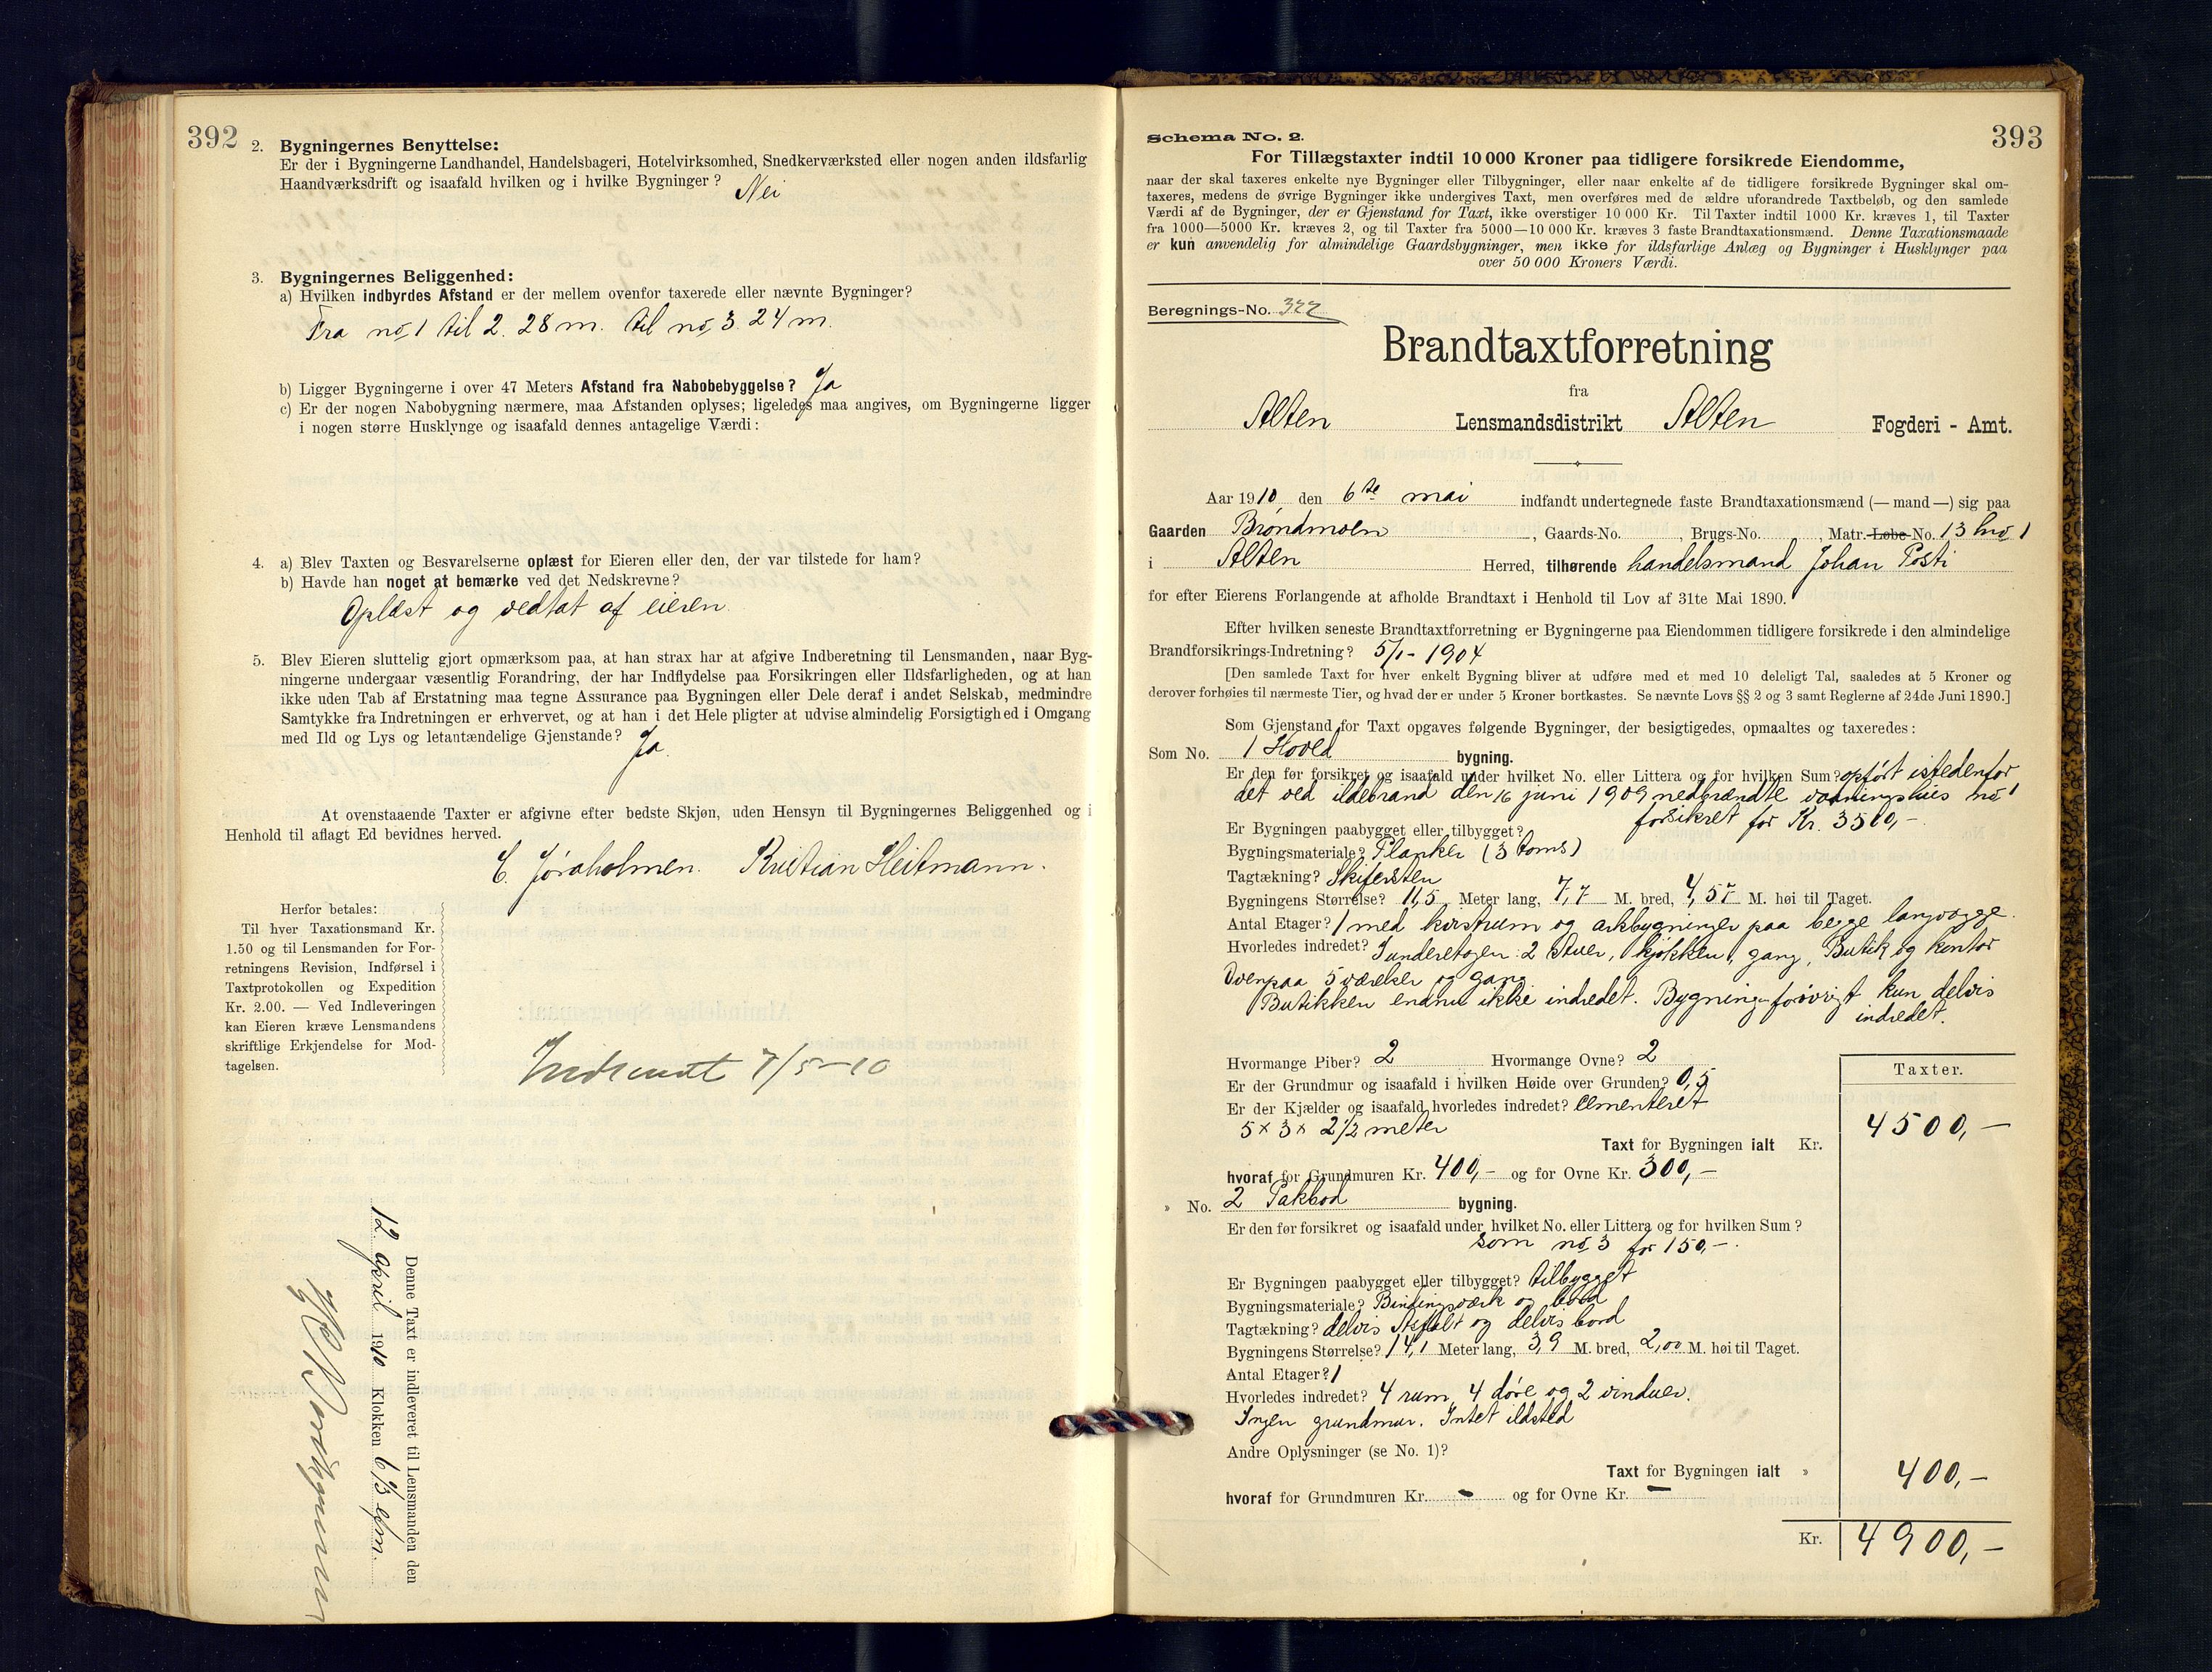 392
2. Bygningernes Benyttelse:
Er der i Bygningerne Landhandel, Handelsbageri, Hotelvirksomhed, Snedkerværksted eller nogen anden ildsfarlig
Haandværksdrift og isaafald hvilken og i hvilke Bygninger? Nei
3. Bygningernes Beliggenhed:
a) Hvilken indbyrdes Afstand er der mellem ovenfor taxerede eller nævnte Bygninger?
Fra no 1 til 2. 28 m. til no 3 24 m.
b) Ligger Bygningerne i over 47 Meters Afstand fra Nabobebyggelse? Ja
c) Er der nogen Nabobygning nærmere, maa Afstanden oplyses; ligeledes maa angives, om Bygningerne ligger
i nogen større Husklynge og isaafald dennes antagelige Værdi:
4. a) Blev Taxten og Besvarelserne oplæst for Eieren eller den, der var tilstede for ham?
b) Havde han noget at bemærke ved det Nedskrevne?
Oplæst og vedtat af eieren.
5. Blev Eieren sluttelig gjort opmærksom paa, at han strax har at afgive Indberetning til Lensmanden, naar Byg-
ningerne undergaar væsentlig Forandring, der har Indflydelse paa Forsikringen eller Ildsfarligheden, og at han
ikke uden Tab af Erstatning maa tegne Assurance paa Bygningen eller Dele deraf i andet Selskab, medmindre
Samtykke fra Indretningen er erhvervet, og at han i det Hele pligter at udvise almindelig Forsigtighed i Omgang
med Ild og Lys og letantændelige Gjenstande? Ja.
At ovenstaaende Taxter er afgivne efter bedste Skjøn, uden Hensyn til Bygningernes Beliggenhed og i
Henhold til aflagt Ed bevidnes herved.
C. Jøraholmen. Kristian Heitmann.
Herfor betales:
Til hver Taxationsmand Kr.
1.50 og til Lensmanden for For-
retningens Revision, Indførsel i
Taxtprotokollen og Expedition
Kr. 2.00. — Ved Indleveringen
kan Eieren kræve Lensmandens
skriftlige Erkjendelse for Mod-
tagelsen.
Indsendt 7/5-10
Denne Taxt er indleveret til Lensmanden den
12 april 1910 Klokken 6 1/2 e/m.
Schema No. 2.
393
For Tillægstaxter indtil 10 000 Kroner paa tidligere forsikrede Eiendomme,
naar der skal taxeres enkelte nye Bygninger eller Tilbygninger, eller naar enkelte af de tidligere forsikrede Bygninger skal om-
taxeres, medens de øvrige Bygninger ikke undergives Taxt, men overføres med de ældre uforandrede Taxtbeløb, og den samlede
Værdi af de Bygninger, der er Gjenstand for Taxt, ikke overstiger 10 000 Kr. Til Taxter indtil 1000 Kr. kræves 1, til Taxter
fra 1000—5000 Kr. kræves 2, og til Taxter fra 5000—10 000 Kr. kræves 3 faste Brandtaxationsmænd. Denne Taxationsmaade
er kun anvendelig for almindelige Gaardsbygninger, men ikke for ildsfarlige Anlæg og Bygninger i Husklynger paa
over 50 000 Kroners Værdi.
Beregnings-No. 322
Brandtaxtforretning
fra
Alten Lensmandsdistrikt Alten Fogderi - Amt.
Aar 1910 den 6te mai indfandt undertegnede faste Brandtaxationsmænd (— mand —) sig paa
Gaarden Brøndmoen, Gaards-No. , Brugs-No. , Matr.-Løbe-No. 13 bno 1
i Alten Herred, tilhørende handelsmand Johan Posti
for efter Eierens Forlangende at afholde Brandtaxt i Henhold til Lov af 31te Mai 1890.
Efter hvilken seneste Brandtaxtforretning er Bygningerne paa Eiendommen tidligere forsikrede i den almindelige
Brandforsikrings-Indretning? 5/1 - 1904
[Den samlede Taxt for hver enkelt Bygning bliver at udføre med et med 10 deleligt Tal, saaledes at 5 Kroner og
derover forhøies til nærmeste Tier, og hvad der er under 5 Kroner bortkastes. Se nævnte Lovs §§ 2 og 3 samt Reglerne af 24de Juni 1890.]
Som Gjenstand for Taxt opgaves følgende Bygninger, der besigtigedes, opmaaltes og taxeredes:
Som No. 1 Hoved bygning.
Er den før forsikret og isaafald under hvilket No. eller Littera og for hvilken Sum? opført istedenfor
det ved ildebrand den 16 juni 1909 nedbrændte vaaningshus no 1
forsikret for Kr. 3500,-
Er Bygningen paabygget eller tilbygget?
Bygningsmateriale? Planker (3 toms)
Tagtækning? Skifersten
Bygningens Størrelse? 11,5 Meter lang, 7,7 M. bred, 4,57 M. høi til Taget.
Antal Etager? 1 med kvistrum og arkbygninger paa begge langvægge.
Hvorledes indredet? I underetagen: 2 stuer, 1 kjøkken, gang, Butik og kontor
Ovenpaa 5 værelser og gang
Butikken endnu ikke indredet. Bygningen forøvrigt kun delvis
indredet.
Hvormange Piber? 2 Hvormange Ovne? 2
Er der Grundmur og isaafald i hvilken Høide over Grunden? 0,5
Er der Kjælder og isaafald hvorledes indredet? Cementeret
5 x 3 x 2 1/2 meter
Taxter.
Taxt for Bygningen ialt Kr. 4500,-
hvoraf for Grundmuren Kr. 400,- og for Ovne Kr. 300,-
» No. 2 Pakbod bygning.
Er den før forsikret og isaafald under hvilket No. eller Littera og for hvilken Sum?
som no 3 for 150,-.
Er Bygningen paabygget eller tilbygget? tilbygget
Bygningsmateriale? Bindingsværk og bord
Tagtækning? delvis Asfalt og delvis bord
Bygningens Størrelse? 14,1 Meter lang, 3,9 M. bred, 2,00 M. høi til Taget.
Antal Etager? 1
Hvorledes indredet? 4 rum, 4 døre og 2 vinduer.
Ingen grundmur. Intet ildsted
Andre Oplysninger (se No. 1)?
Taxt for Bygningen ialt » 400,-
hvoraf for Grundmuren Kr. - og for Ovne Kr. -
Kr. 4900,-